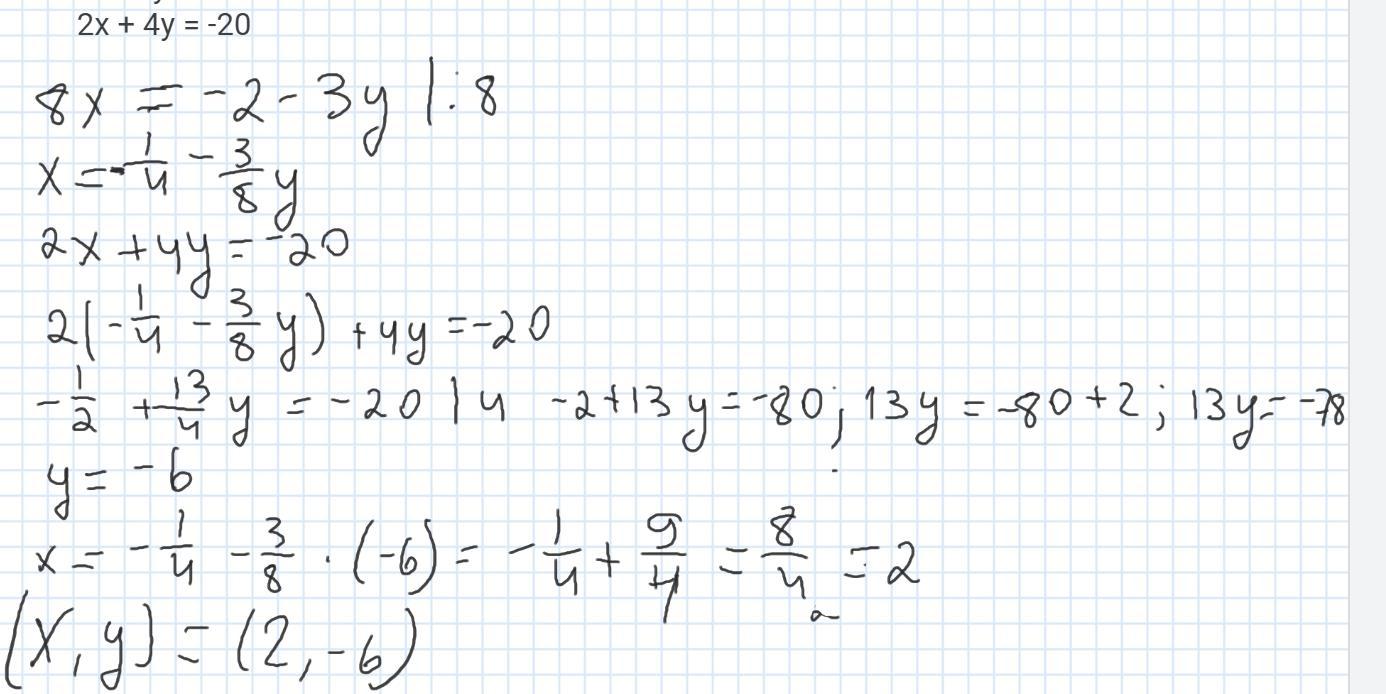 2x + 4y = -20
8x = -2 - 3y |:8
x = -1/4 - 3/8 y
2x + 4y = -20
2(-1/4 - 3/8 y) + 4y = -20
-1/2 + 13/4 y = -20 | 4 -2+13y = -80; 13y = -80+2; 13y = -78
y = -6
x = -1/4 - 3/8 · (-6) = -1/4 + 9/4 = 8/4 = 2
(x, y) = (2, -6)